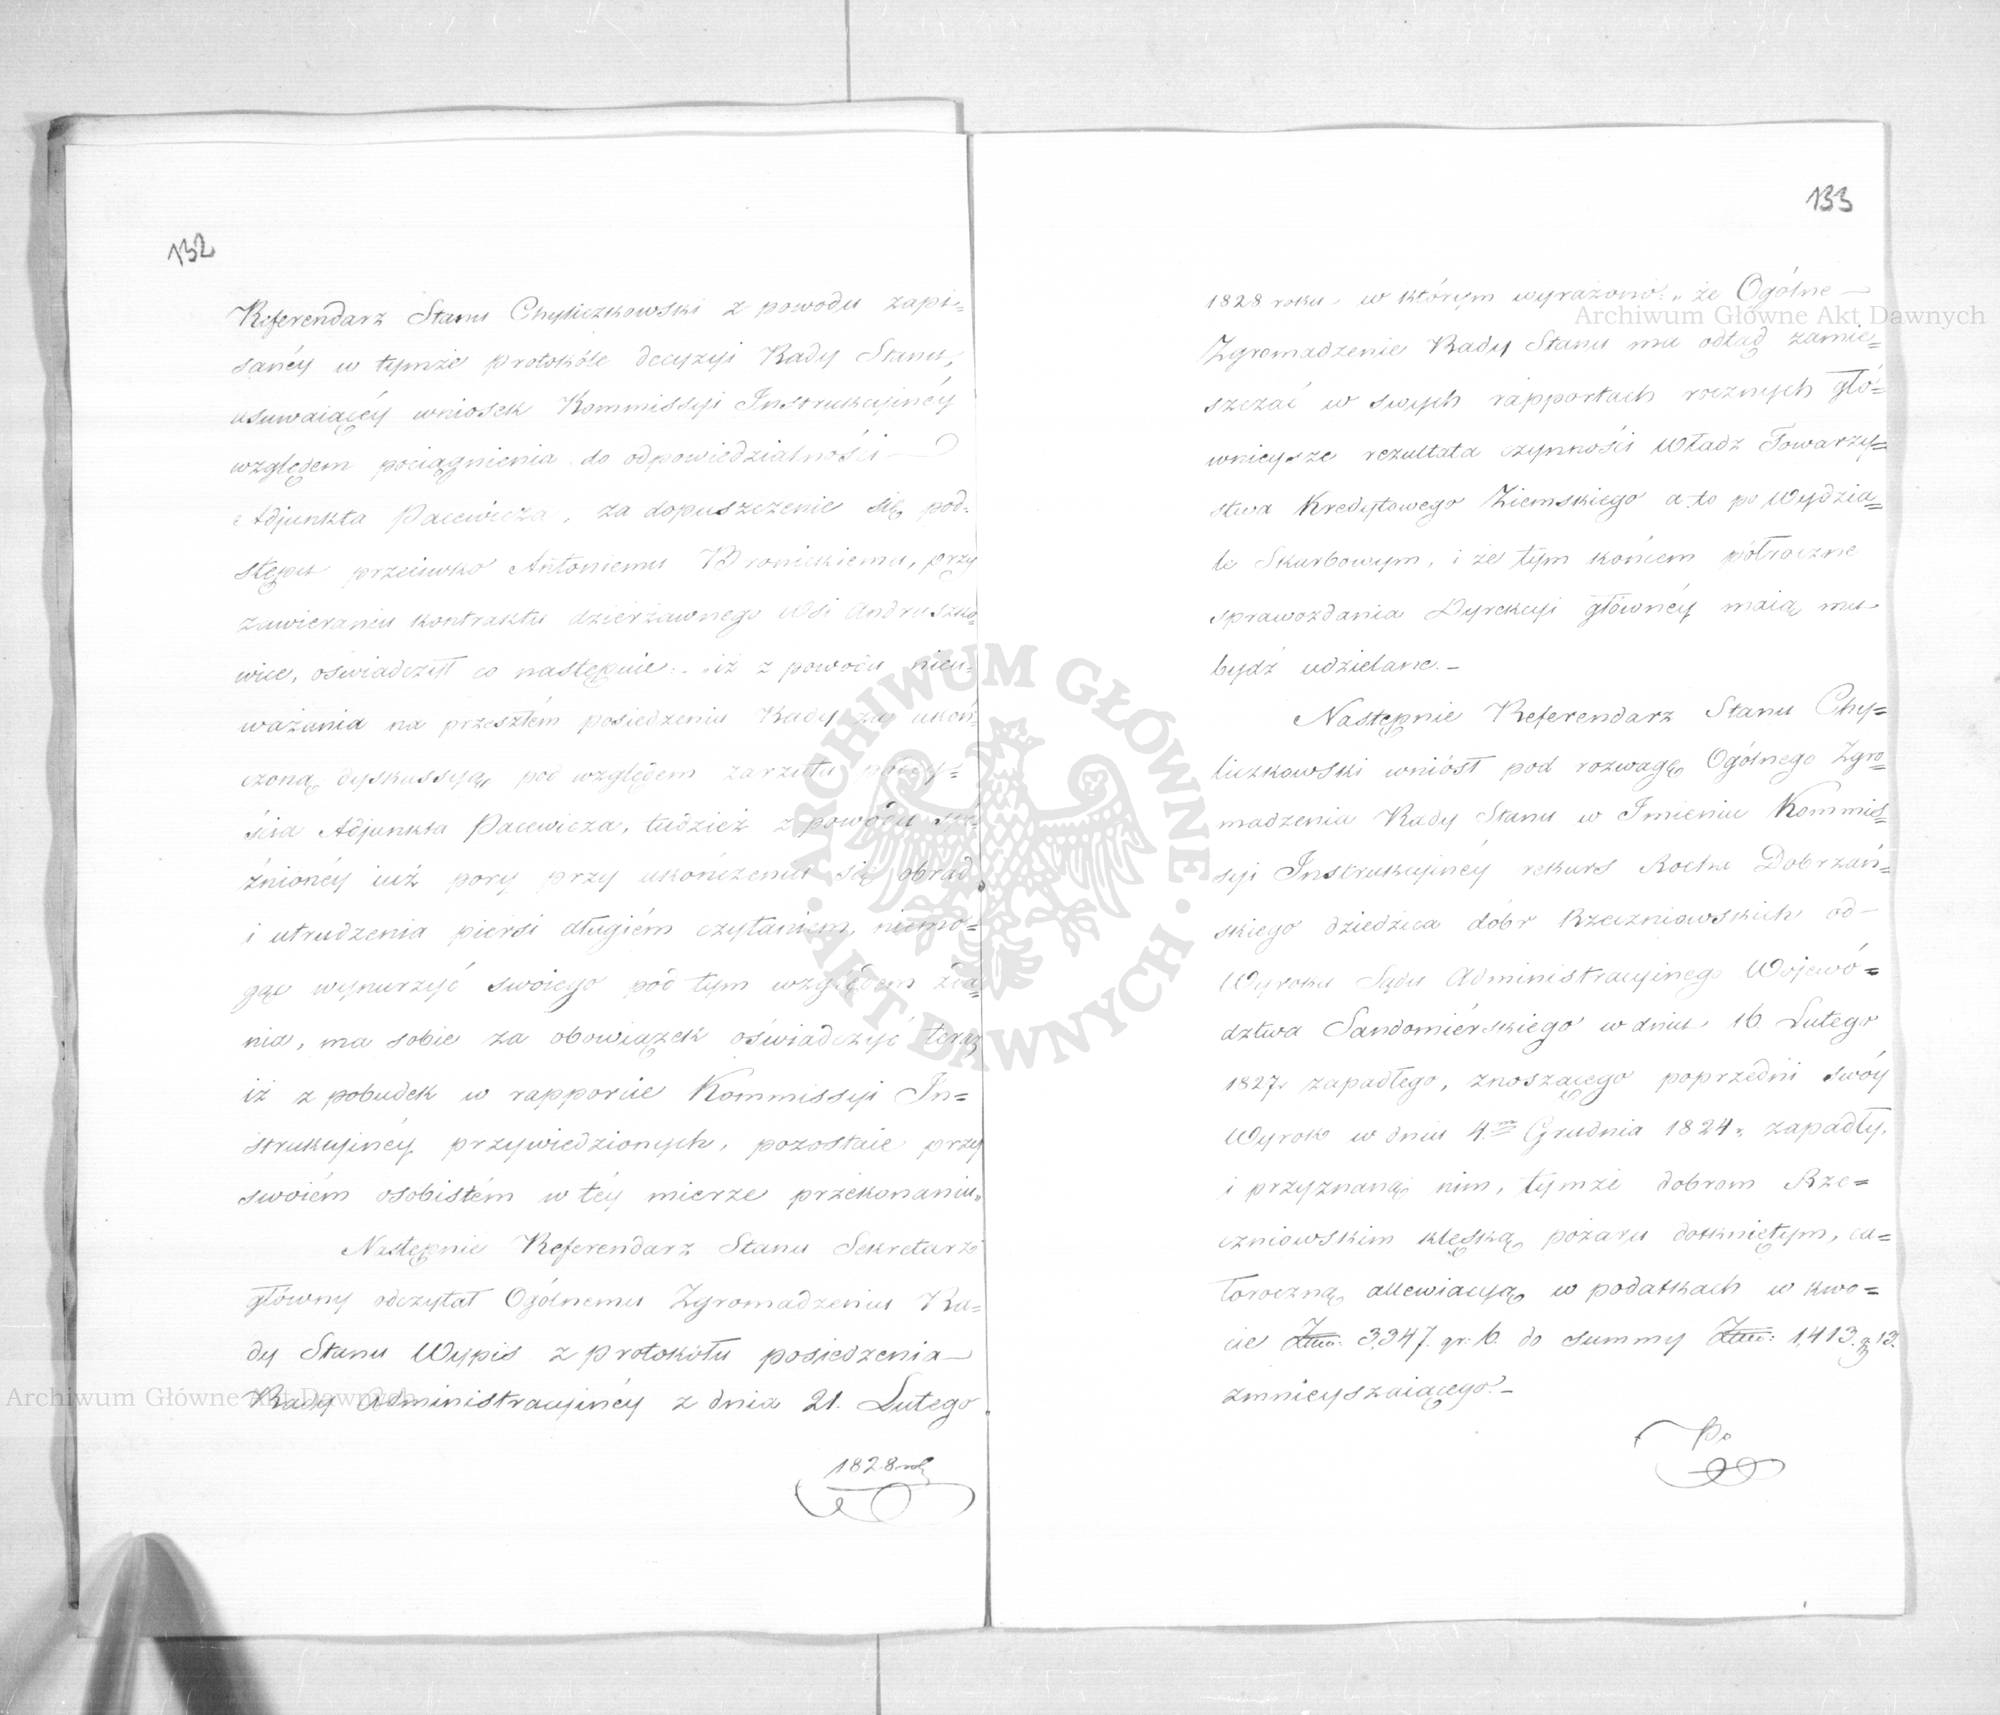 132
Referendarz Stanu Chyliczkowski z powodu zapi=
sanéy w tymże protokóle decyzyi Rady Stanu,
usuwaiącéy wniosek Kommissyi Instrukcyinéy
względem pociągnienia do odpowiedzialności —
Adjunkta Pacewicza, za dopuszczenie się pod-
stępu przeciwko Antoniemu Bronickiemu, przy
zawieraniu kontraktu dzierżawnego Wsi Andruszko=
wice, oświadczył co następuie: „iż z powodu nieu=
ważania na przeszłém posiedzeniu Rady za ukoń=
czoną dyskussyą, pod względem zarzutu
Adjunkta Pacewicza, tudzież z powodu spó=
źnionéy iuż pory przy ukończeniu się obrad
i utrudzenia piersi długiém czytaniem, niemo=
gąc wynurzyć swoiego pod tym względem zda=
nia, ma sobie za obowiązek oświadczyć teraz
iż z pobudek w rapporcie Kommissyi In=
strukcyinéy przywiedzionych, pozostaie przy
swoiém osobistém w téy mierze przekonaniu„
Następnie Referendarz Stanu Sekretarz
główny odczytał Ogólnemu Zgromadzeniu Ra=
dy Stanu Wypis z protokółu posiedzenia —
Rady Administracyinéy z dnia 21. Lutego
1828 rok
133
1828 roku w którym wyrażono: „że Ogólne —
Zgromadzenie Rady Stanu ma odtąd zamie=
szczać w swych rapportach rocznych głó=
wnieysze rezultata czynności Władz Towarzy=
stwa Kredytowego Ziemskiego a to po Wydzia=
le Skarbowym, i że tym końcem półroczne
sprawozdania Dyrekcyi główney maią mu
bydź udzielane. –
Następnie Referendarz Stanu Chy=
liczkowski wniósł pod rozwagę Ogólnego Zgro=
madzenia Rady Stanu w Imieniu Kommis=
syi Instrukcyinéy rekurs Rocha Dobrzań=
skiego dziedzica dóbr Rzeczniowskich od —
Wyroku Sądu Administracyinego Wojewó=
dztwa Sandomiérskiego w dniu 16. Lutego
1827. zapadłego, znoszącego poprzedni swóy
Wyrok w dniu 4.m Grudnia 1824. zapadły,
i przyznaną nim, tymże dobrom Rze=
czniowskim klęską pożaru dotkniętym, ca=
łoroczną allewiacyą w podatkach w kwo=
cie Złtw: 3,347. gr: 6. do summy Złtw: 1,413. g 13.
zmnieyszaiącego. –
Po
Archiwum Główne Akt Dawnych
Archiwum Główne Akt Dawnych
ARCHIWUM GŁÓWNE · AKT DAWNYCH ·